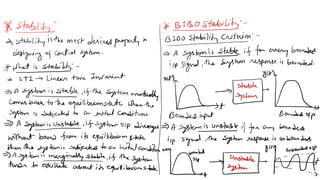 * Stability :-
⇒ Stability is the most desired property in
designing of control system.
* What is stability :-
⇒ LTI → Linear Time Invariant
⇒ A system is stable, if the system eventually
comes back to the equilibrium state when the
system is subjected to an initial condition
⇒ A system is unstable, if system o/p diverges
without bounds from its equilibrium state
when the system is subjected to an initial condition
⇒ A system is marginally stable, if the system
tends to oscillate about its equilibrium state.
* BIBO Stability :-
BIBO Stability Criterion :-
⇒ A system is stable, if for every bounded
i/p signal, the system response is bounded.
Stable
System
Bounded input
Bounded o/p
⇒ A system is unstable if for any bounded
i/p signal, the system response is unbounded
Bounded
i/p
Unstable
System